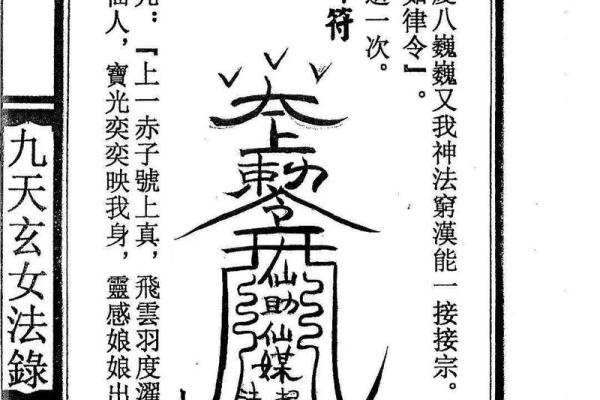 度八巍巍又我神法窮漢能一接接宗。
如律令』。
一次。
符
太上勅令
仙助仙媒
：『上一赤子號上真，飛雲羽度
仙人，寶光奕奕映我身，靈感娘娘出
九天玄女法錄